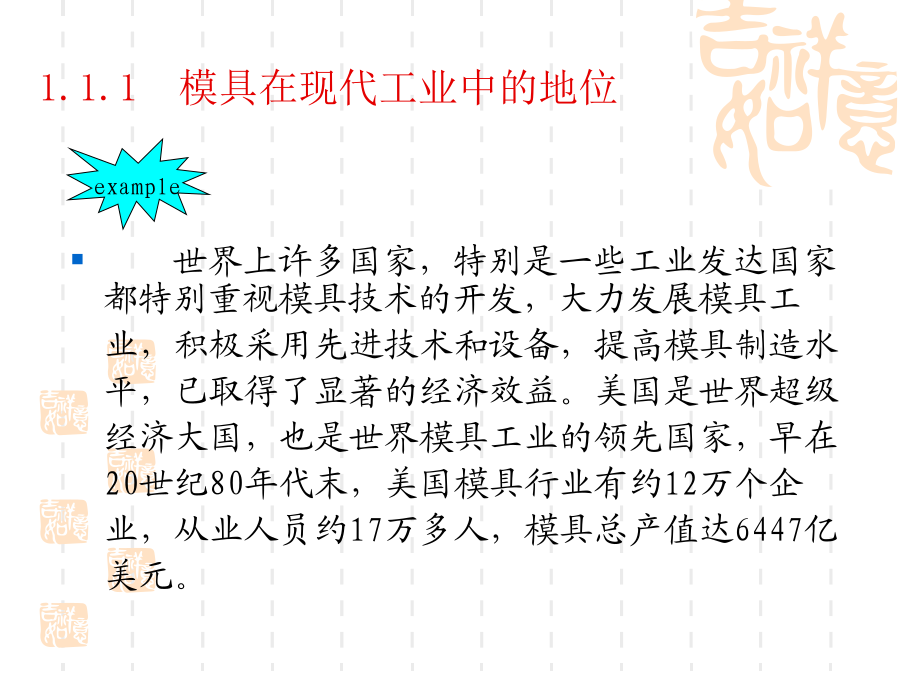 1.1.1 模具在现代工业中的地位
吉祥如意
example
世界上许多国家，特别是一些工业发达国家
都特别重视模具技术的开发，大力发展模具工
业，积极采用先进技术和设备，提高模具制造水
平，已取得了显著的经济效益。美国是世界超级
经济大国，也是世界模具工业的领先国家，早在
20世纪80年代末，美国模具行业有约12万个企
业，从业人员约17万多人，模具总产值达6447亿
美元。
吉祥如意
吉祥如意
吉祥如意
吉祥如意
吉祥如意
吉祥如意